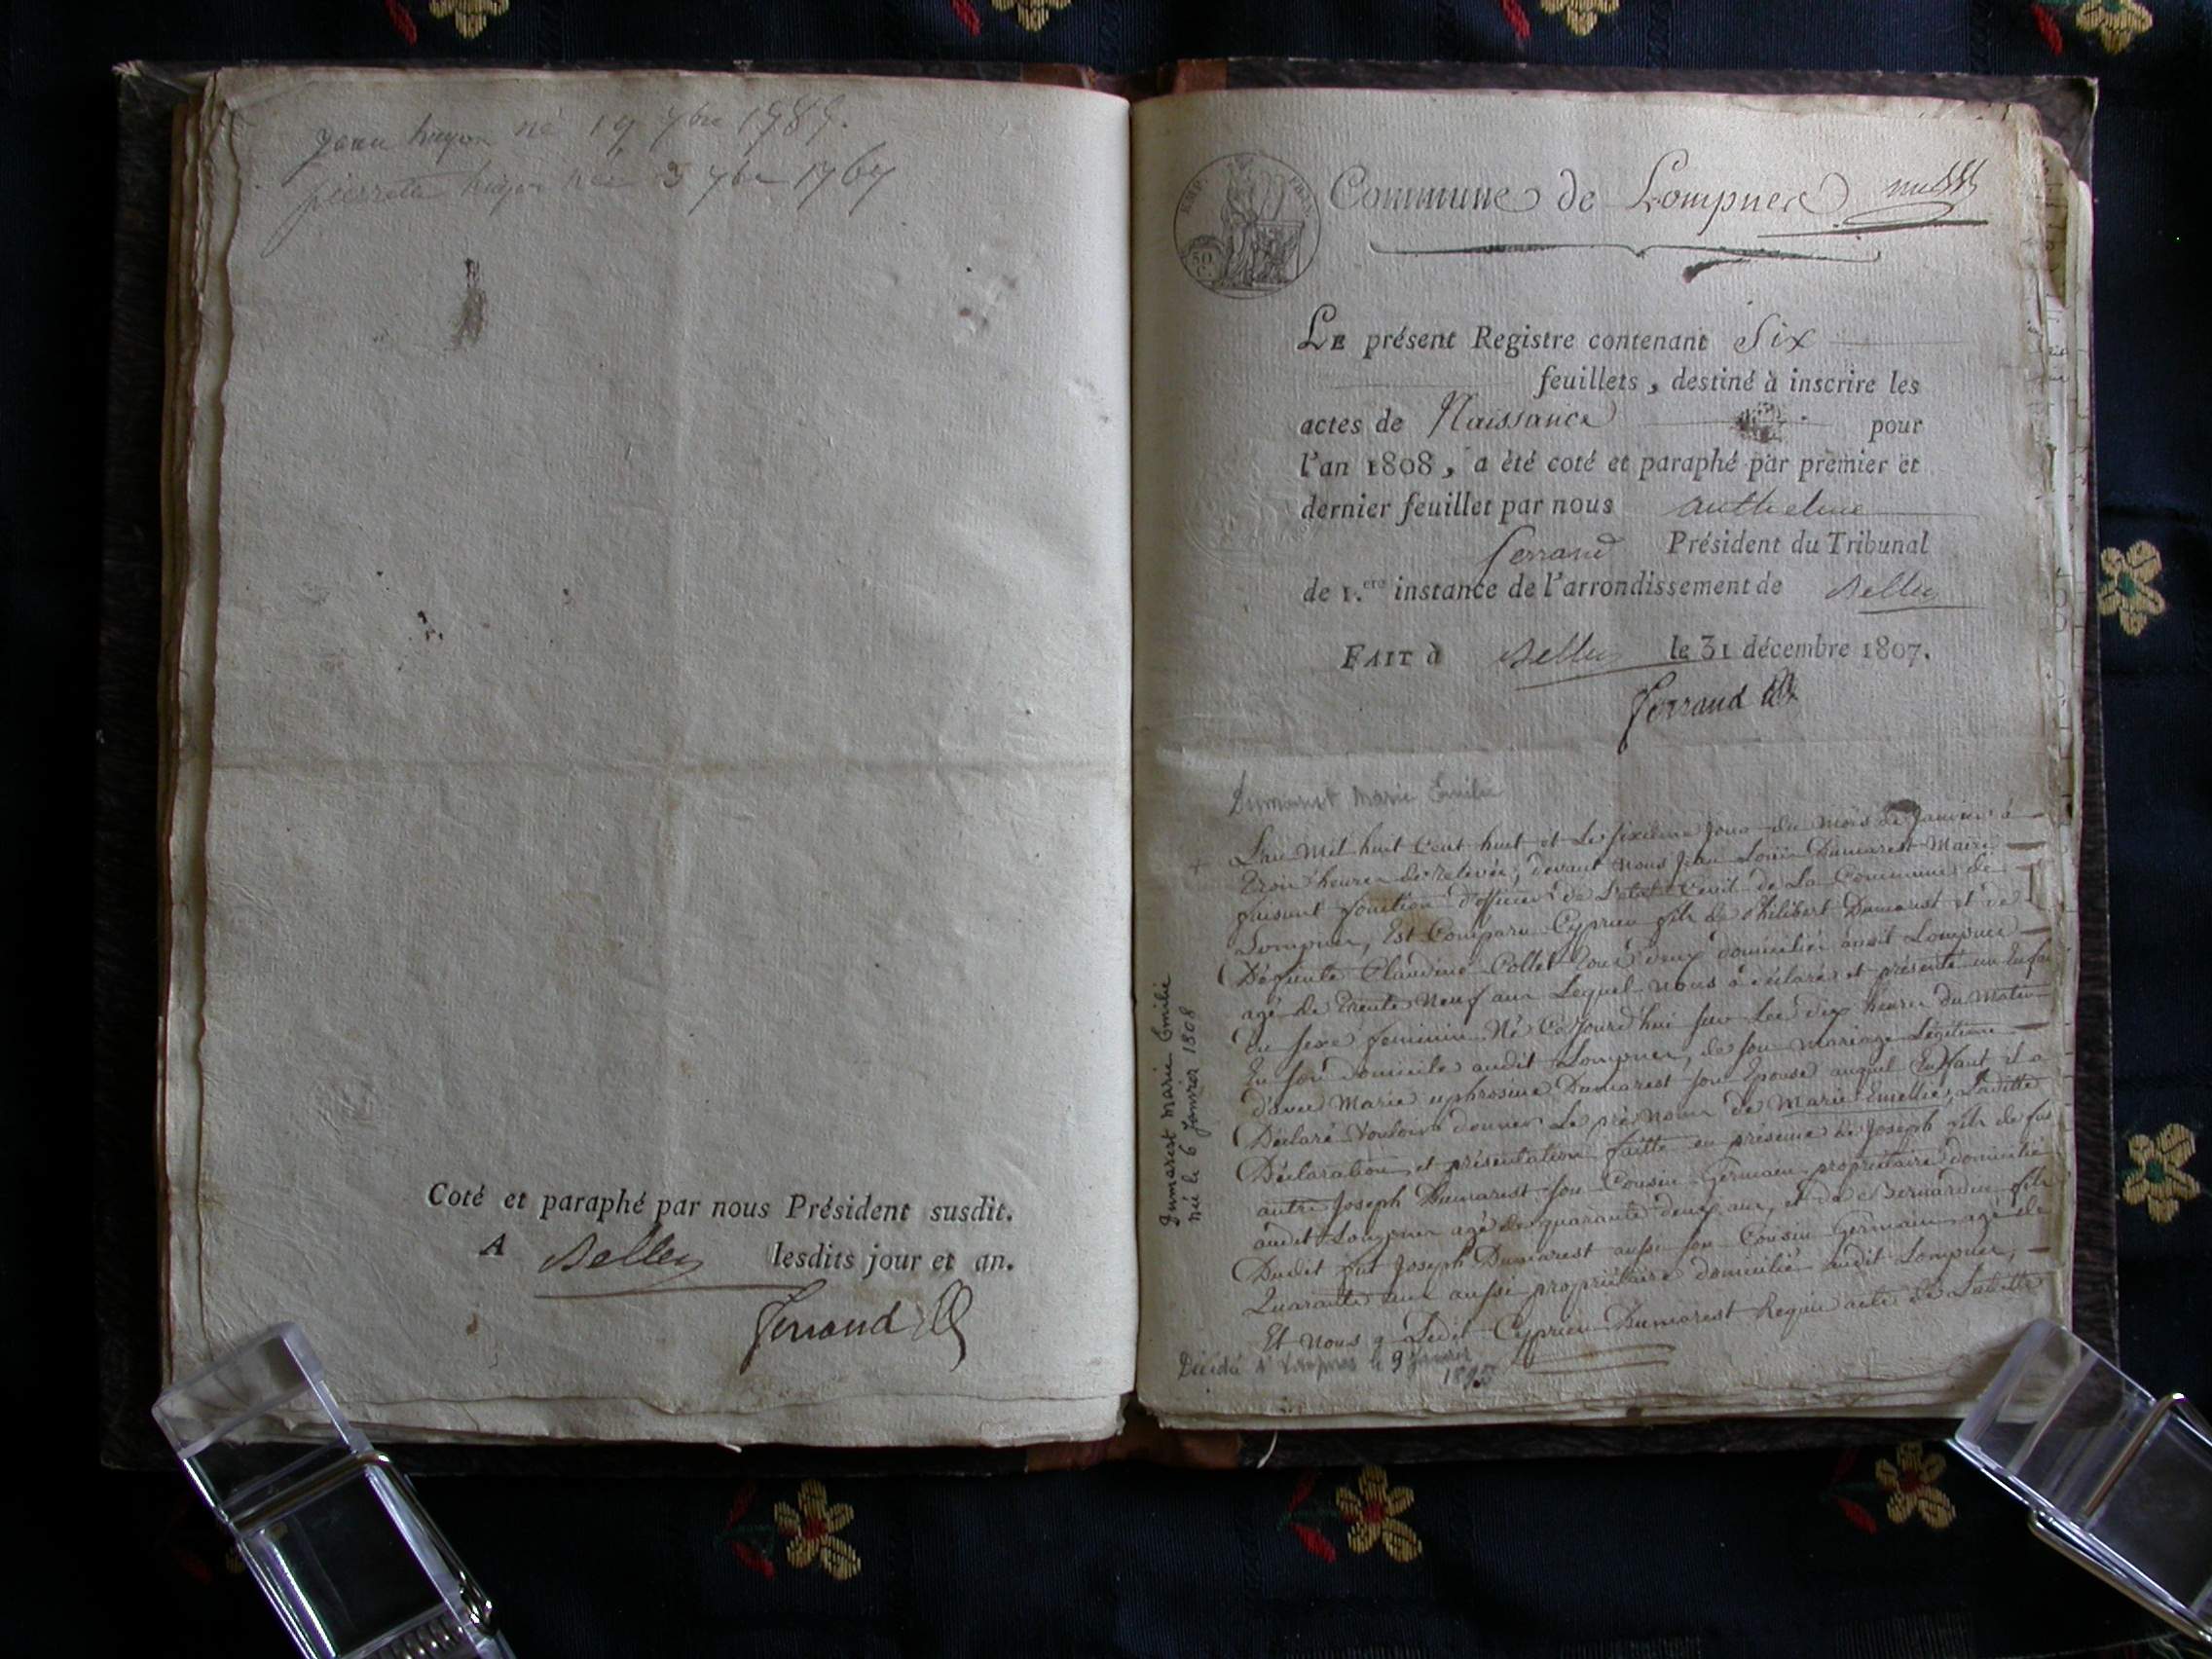 jean hugon né 19 7bre 1789.
pierrette hugon née 5 7bre 1767
Coté et paraphé par nous Président susdit.
A Belley lesdits jour et an.
Ferrand
EMP. FRAN.
50 C.
Commune de Lompner
LE présent Registre contenant Six
feuillets, destiné à inscrire les
actes de Naissance pour
l'an 1808, a été coté et paraphé par premier et
dernier feuillet par nous anthelme
ferrand Président du Tribunal
de 1.ere instance de l'arrondissement de Belley
FAIT à Belley le 31 décembre 1807.
Ferrand
Dumarest Marie Emilie
L'an mil huit cent huit et le sixième jour du mois de Janvier à
trois heures de relevée, devant nous Jean Louis Dumarest Maire
faisant fonction d'officier de L'etat Civil de La Commune de
Lompner, Est Comparu Cyprien fils de Philibert Dumarest et de
Défunte Claudine Collet tous deux domiciliés audit Lompner
agé de trente neuf ans Lequel nous a déclaré et présenté un Enfant
du sexe feminin Né Ce Jourd'hui sur Les dix heures du Matin
En son domicile audit Lompner, de son mariage Légitime
d'avec Marie euphrosine Dumarest son Epouse auquel Enfant il a
Déclaré Vouloir donner Le pré nom de Marie Emellie, Laditte
Déclaration et présentation faitte en présence de Joseph fils de feu
autre Joseph Dumarest son Cousin Germain propriétaire domicilié
audit Lompner agé de quarante deux ans, et de Bernardin fils
Dudit feu Joseph Dumarest aussi son Cousin Germain agé de
Quarante ans aussi propriétaire domicilié audit Lompner,
Et nous a Ledit Cyprien Dumarest Requis acte de Laditte
Dumarest Marie Emilie
née le 6 Janvier 1808
Décédé à Lompnes le 9 Janvier